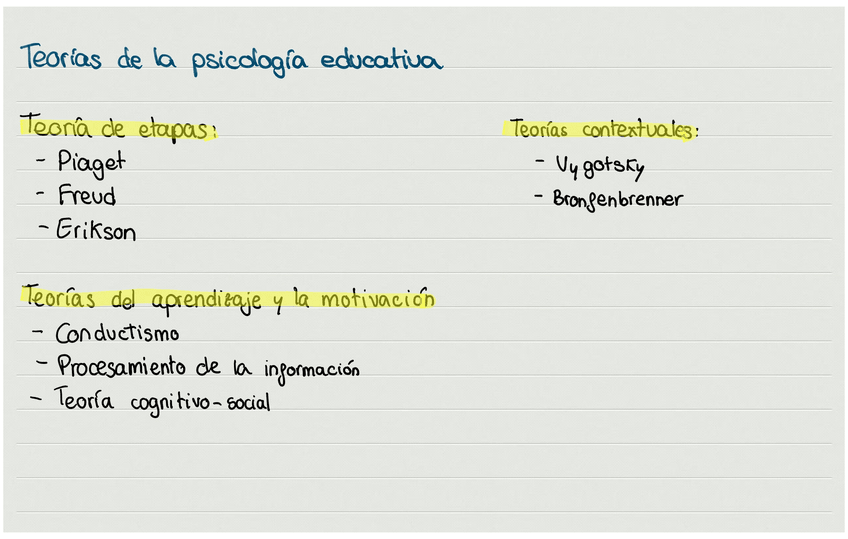 Teorías de la psicología educativa
Teoría de etapas:
- Piaget
- Freud
- Erikson
Teorías contextuales:
- Vygotsky
- Bronfenbrenner
Teorías del aprendizaje y la motivación
- Conductismo
- Procesamiento de la información
- Teoría cognitivo-social